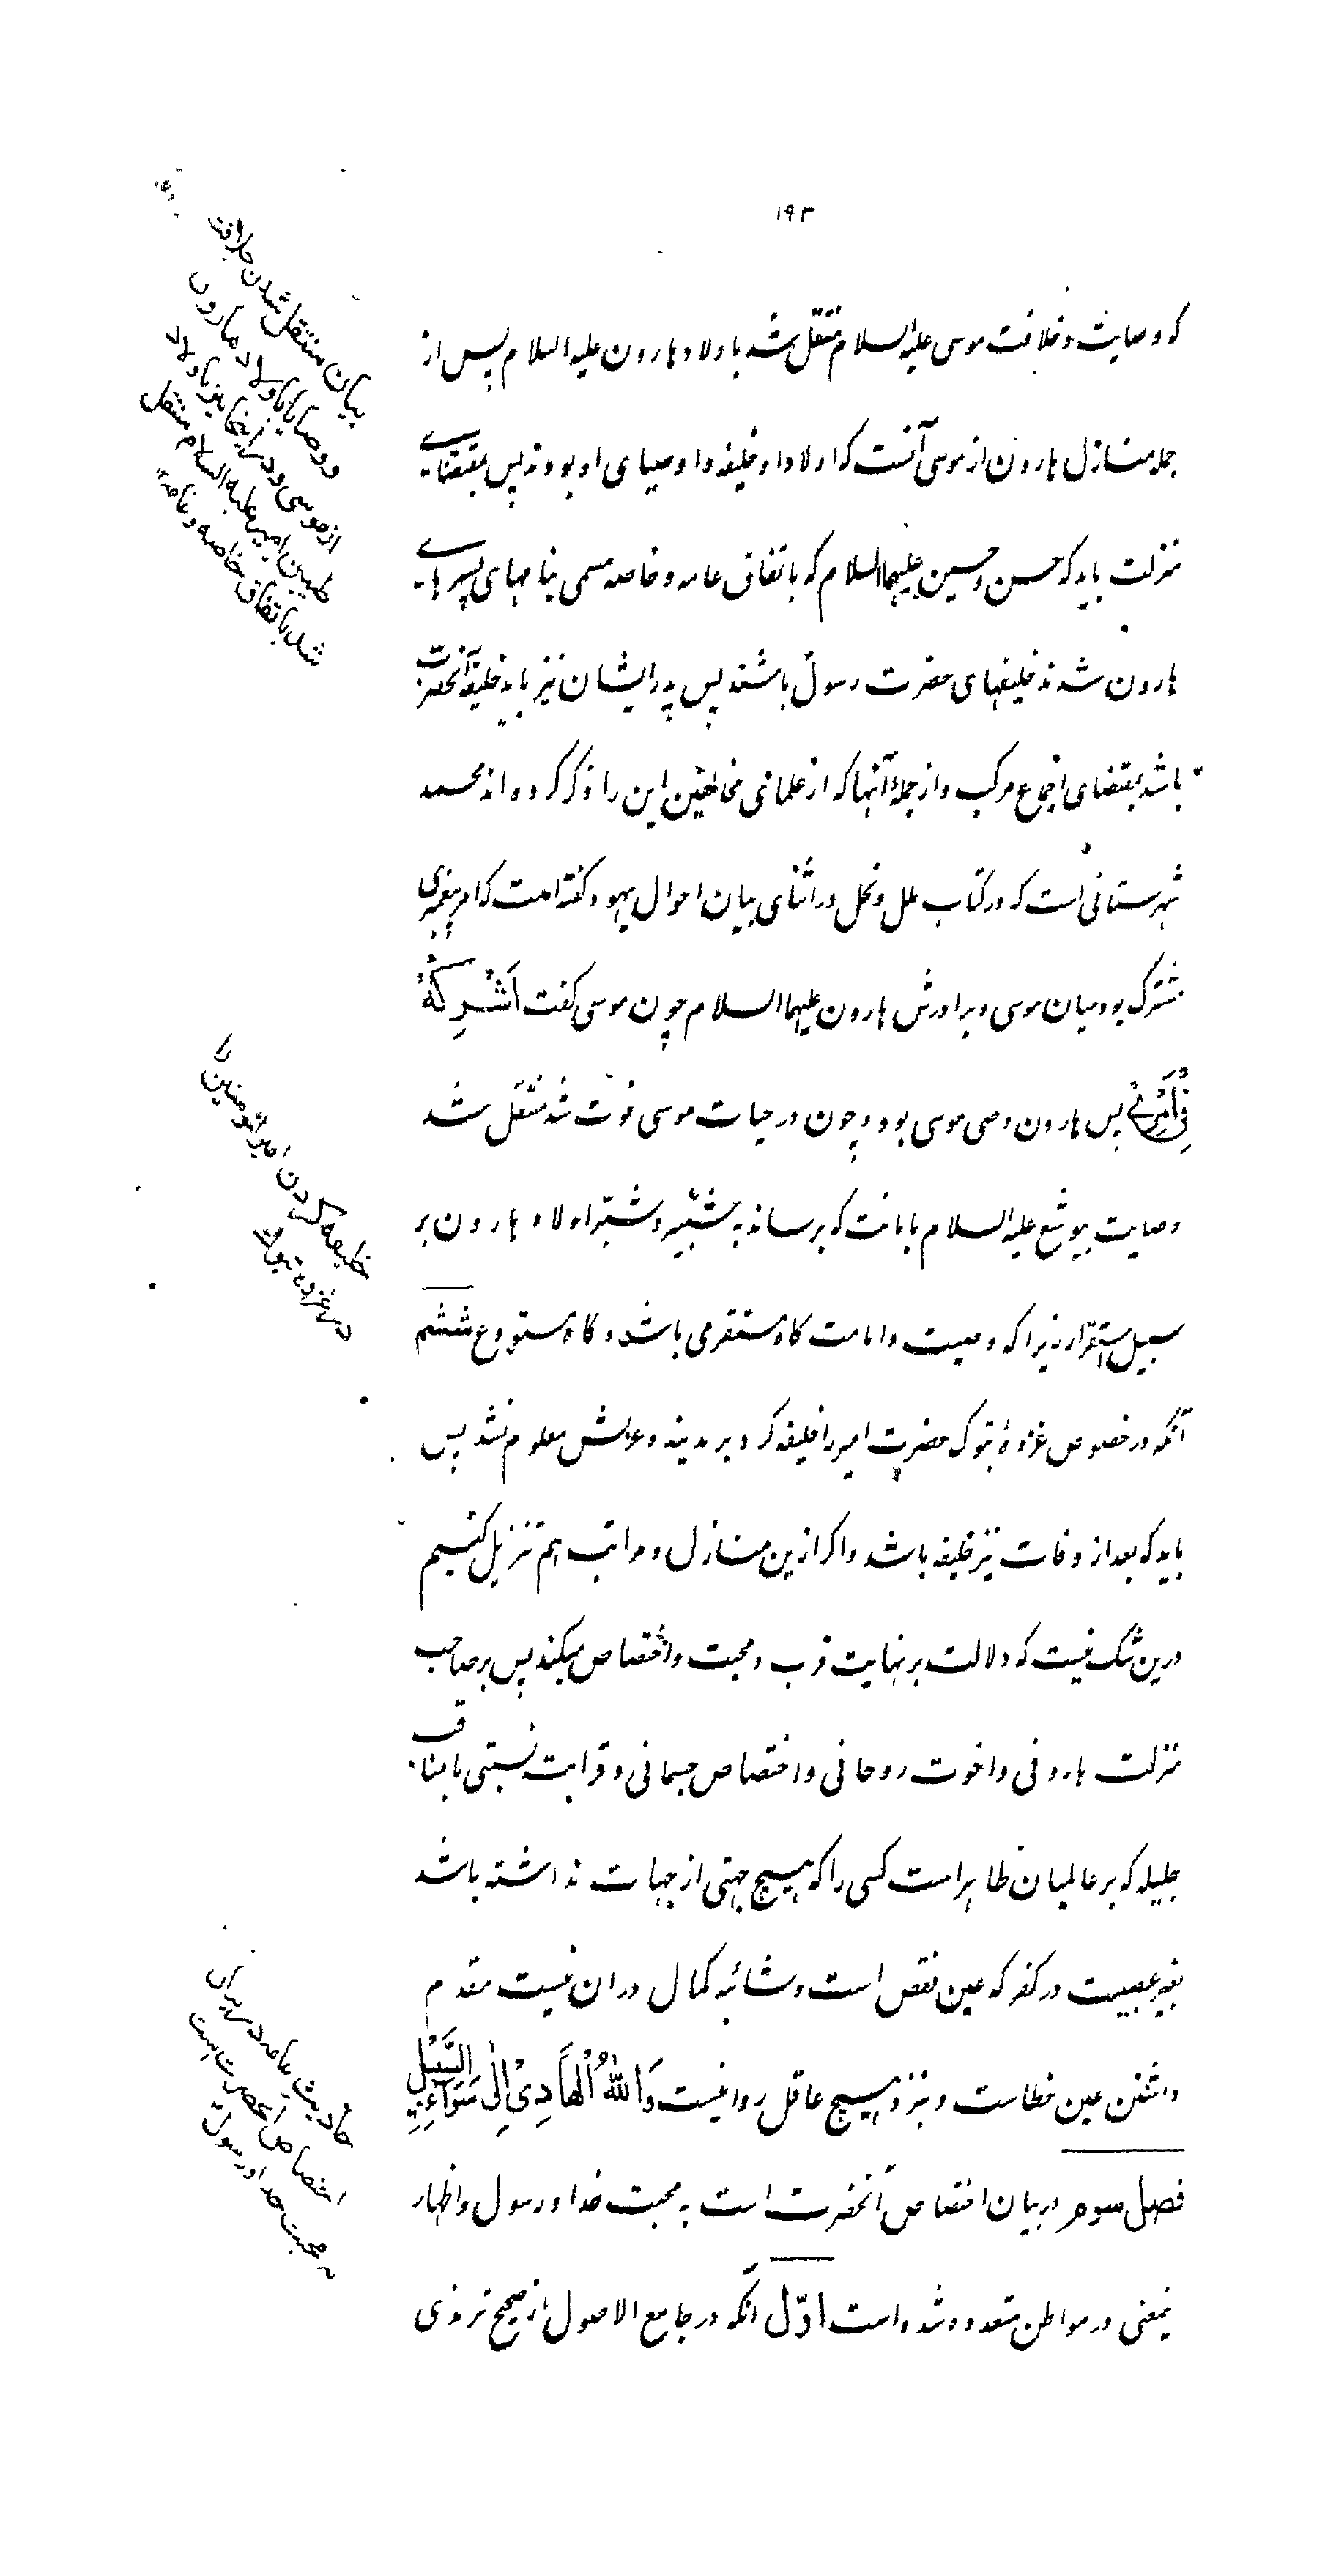 ۱۹۳
که وصایت و خلافت موسی علیه السلام منتقل شد باولاد هارون علیه السلام پس از
جمله منازل هارون از موسی آنست که اولاد او خلیفه و اوصیای او بودند پس بمقتضای
منزلت باید که حسن و حسین علیهما السلام که باتفاق عامه و خاصه مسمی بنامهای پسرهای
هارون شدند خلیفهای حضرت رسول باشند پس پدر ایشان نیز باید خلیفه آنحضرت
باشد بمقتضای اجماع مرکب و از جمله آنها که از علمای مخالفین این را ذکر کرده اند محمد
شهرستانی است که در کتاب ملل و نحل در اثنای بیان احوال یهود گفته است که امر پیغمبری
مشترک بود میان موسی و برادرش هارون علیهما السلام چون موسی گفت اَشْرِکْهُ
فِیْ اَمْرِیْ پس هارون وصی موسی بود و چون در حیات موسی فوت شد منتقل شد
وصایت بیوشع علیه السلام بامانت که برساند به شبیر و شبر اولاد هارون بر
سبیل استقرار زیرا که وصیت و امامت گاه مستقر می باشد و گاه مستودع ششم
آنکه در خصوص غزوهٔ تبوک حضرت امیر را خلیفه کرد بر مدینه و عزلش معلوم نشد پس
باید که بعد از وفات نیز خلیفه باشد و اگر ازین منازل و مراتب هم تنزیل کنیم
درین شک نیست که دلالت بر نهایت قرب و محبت و اختصاص میکند پس بر صاحب
منزلت هارونی و اخوت روحانی و اختصاص جسمانی و قرابت نسبتی با مناقب
جلیله که بر عالمیان ظاهر است کسی را که هیچ جهتی از جهات نداشته باشد
بغیر عصبیت در کفر که عین نقص است و شائبه کمال در ان نیست مقدم
داشتن عین خطاست و نزد هیچ عاقل روا نیست وَاللّٰهُ الْهَادِیْ اِلٰی سَوَآءِ السَّبِیْلِ
فصل سوم در بیان اختصاص آنحضرت است به محبت خدا و رسول و اظهار
یمعنی در مواطن متعدده شده است اوّل آنکه در جامع الاصول از صحیح ترمذی
بیان منتقل شدن خلافت
و وصایا باولاد هارون
از موسی و در اینجا نیز باولاد
طیبین امیر علیه السلام منتقل
شد باتفاق خاصه و عامه
خلیفه کردن امیرالمومنین را
در غزوه تبوک
احادیث عامه در بیان
اختصاص آنحضرت است
به محبت خدا و رسول